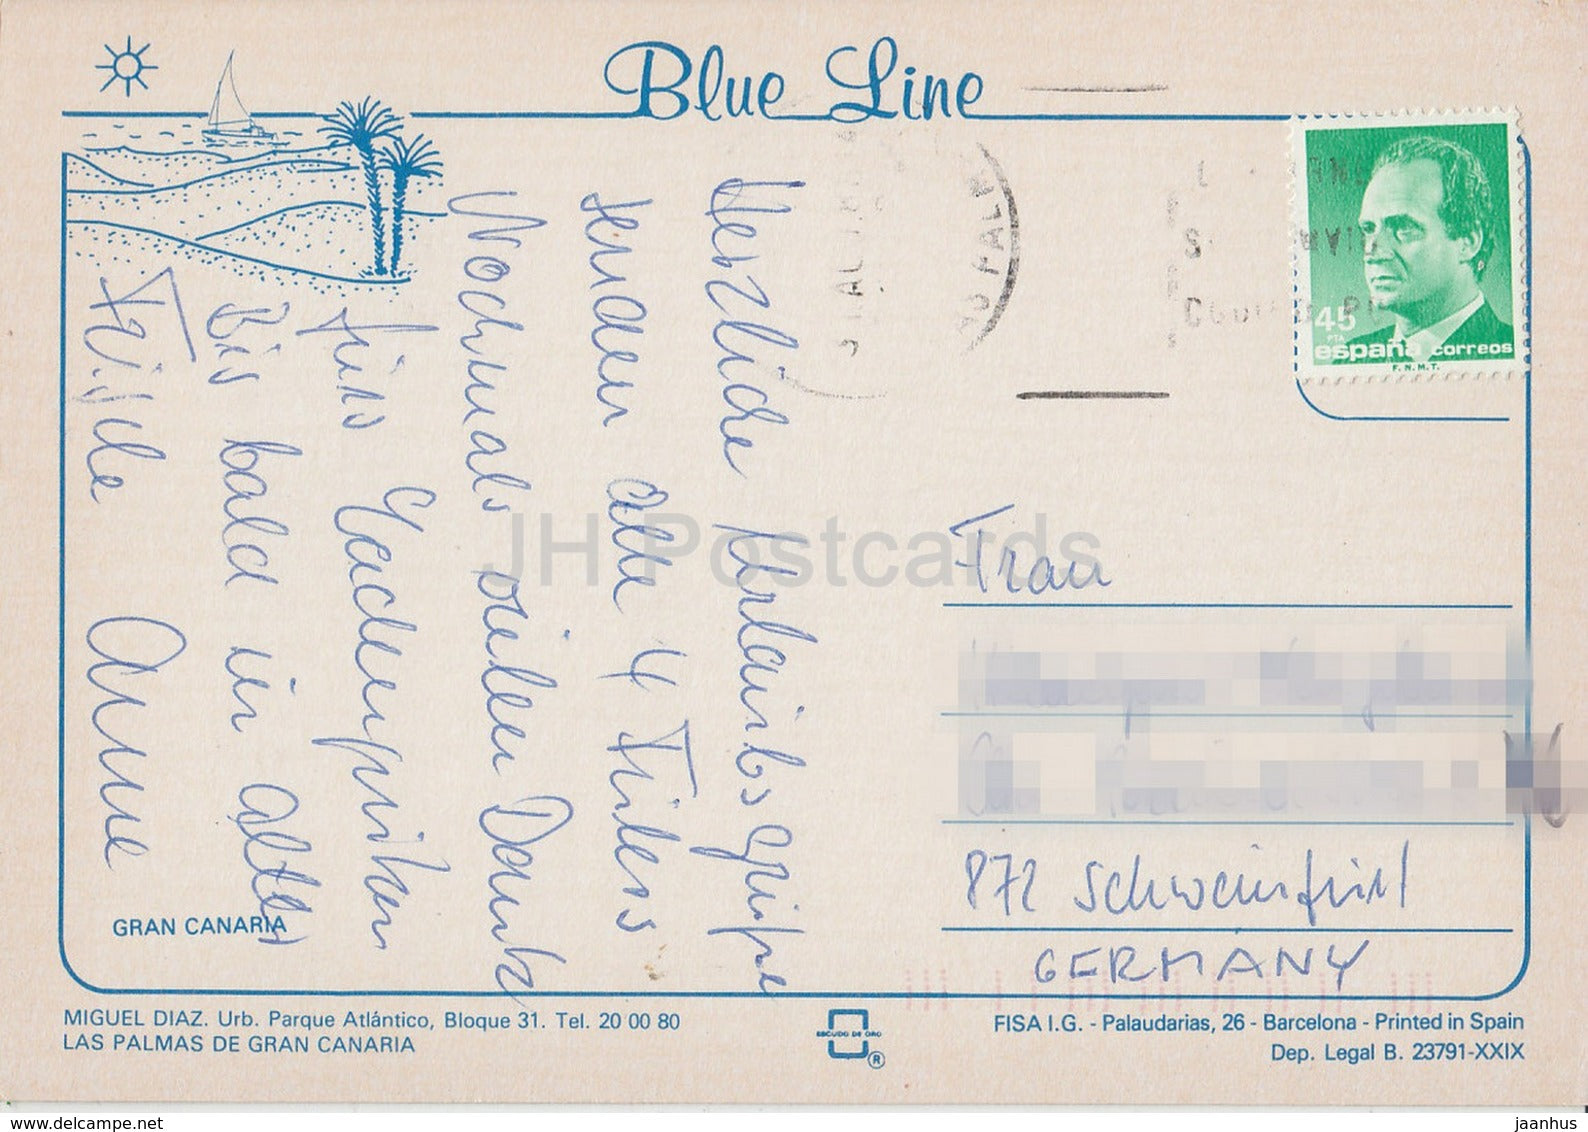 Blue Line
45
PTA
españa correos
F.N.M.T.
Herzliche Urlaubsgrüße
senden alle 4 Fideless
Nochmals vielen Dank
fürs
Bis bald in alter
Frische Anne
Frau
872 Schweinfurt
GERMANY
GRAN CANARIA
MIGUEL DIAZ. Urb. Parque Atlántico, Bloque 31. Tel. 20 00 80
LAS PALMAS DE GRAN CANARIA
ESCUDO DE ORO
®
FISA I.G. - Palaudarias, 26 - Barcelona - Printed in Spain
Dep. Legal B. 23791-XXIX
JH Postcards
www.delcampe.net
jaanhus